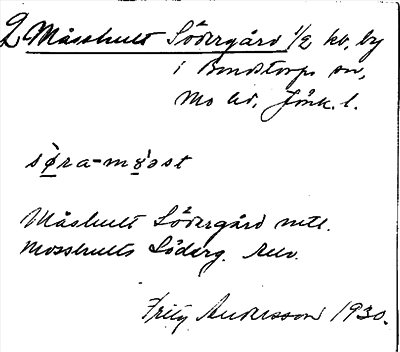 2 Måshult Södergård 1/2 kv, by
i Bondstorps sn,
Mo hd, Jönk. l.
søra-møost
Måshult Södergård mtl.
Mosshults Söderg.
Fritz Andersson 1930.